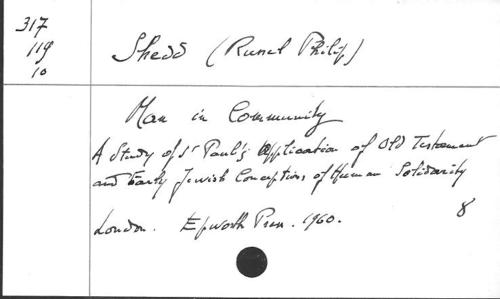 317
119
10
Shedd (Russell Philip)
Man in Community
A Study of St Paul's Application of Old Testament
and Early Jewish Conceptions of Human Solidarity
London. Epworth Press. 1960.
8